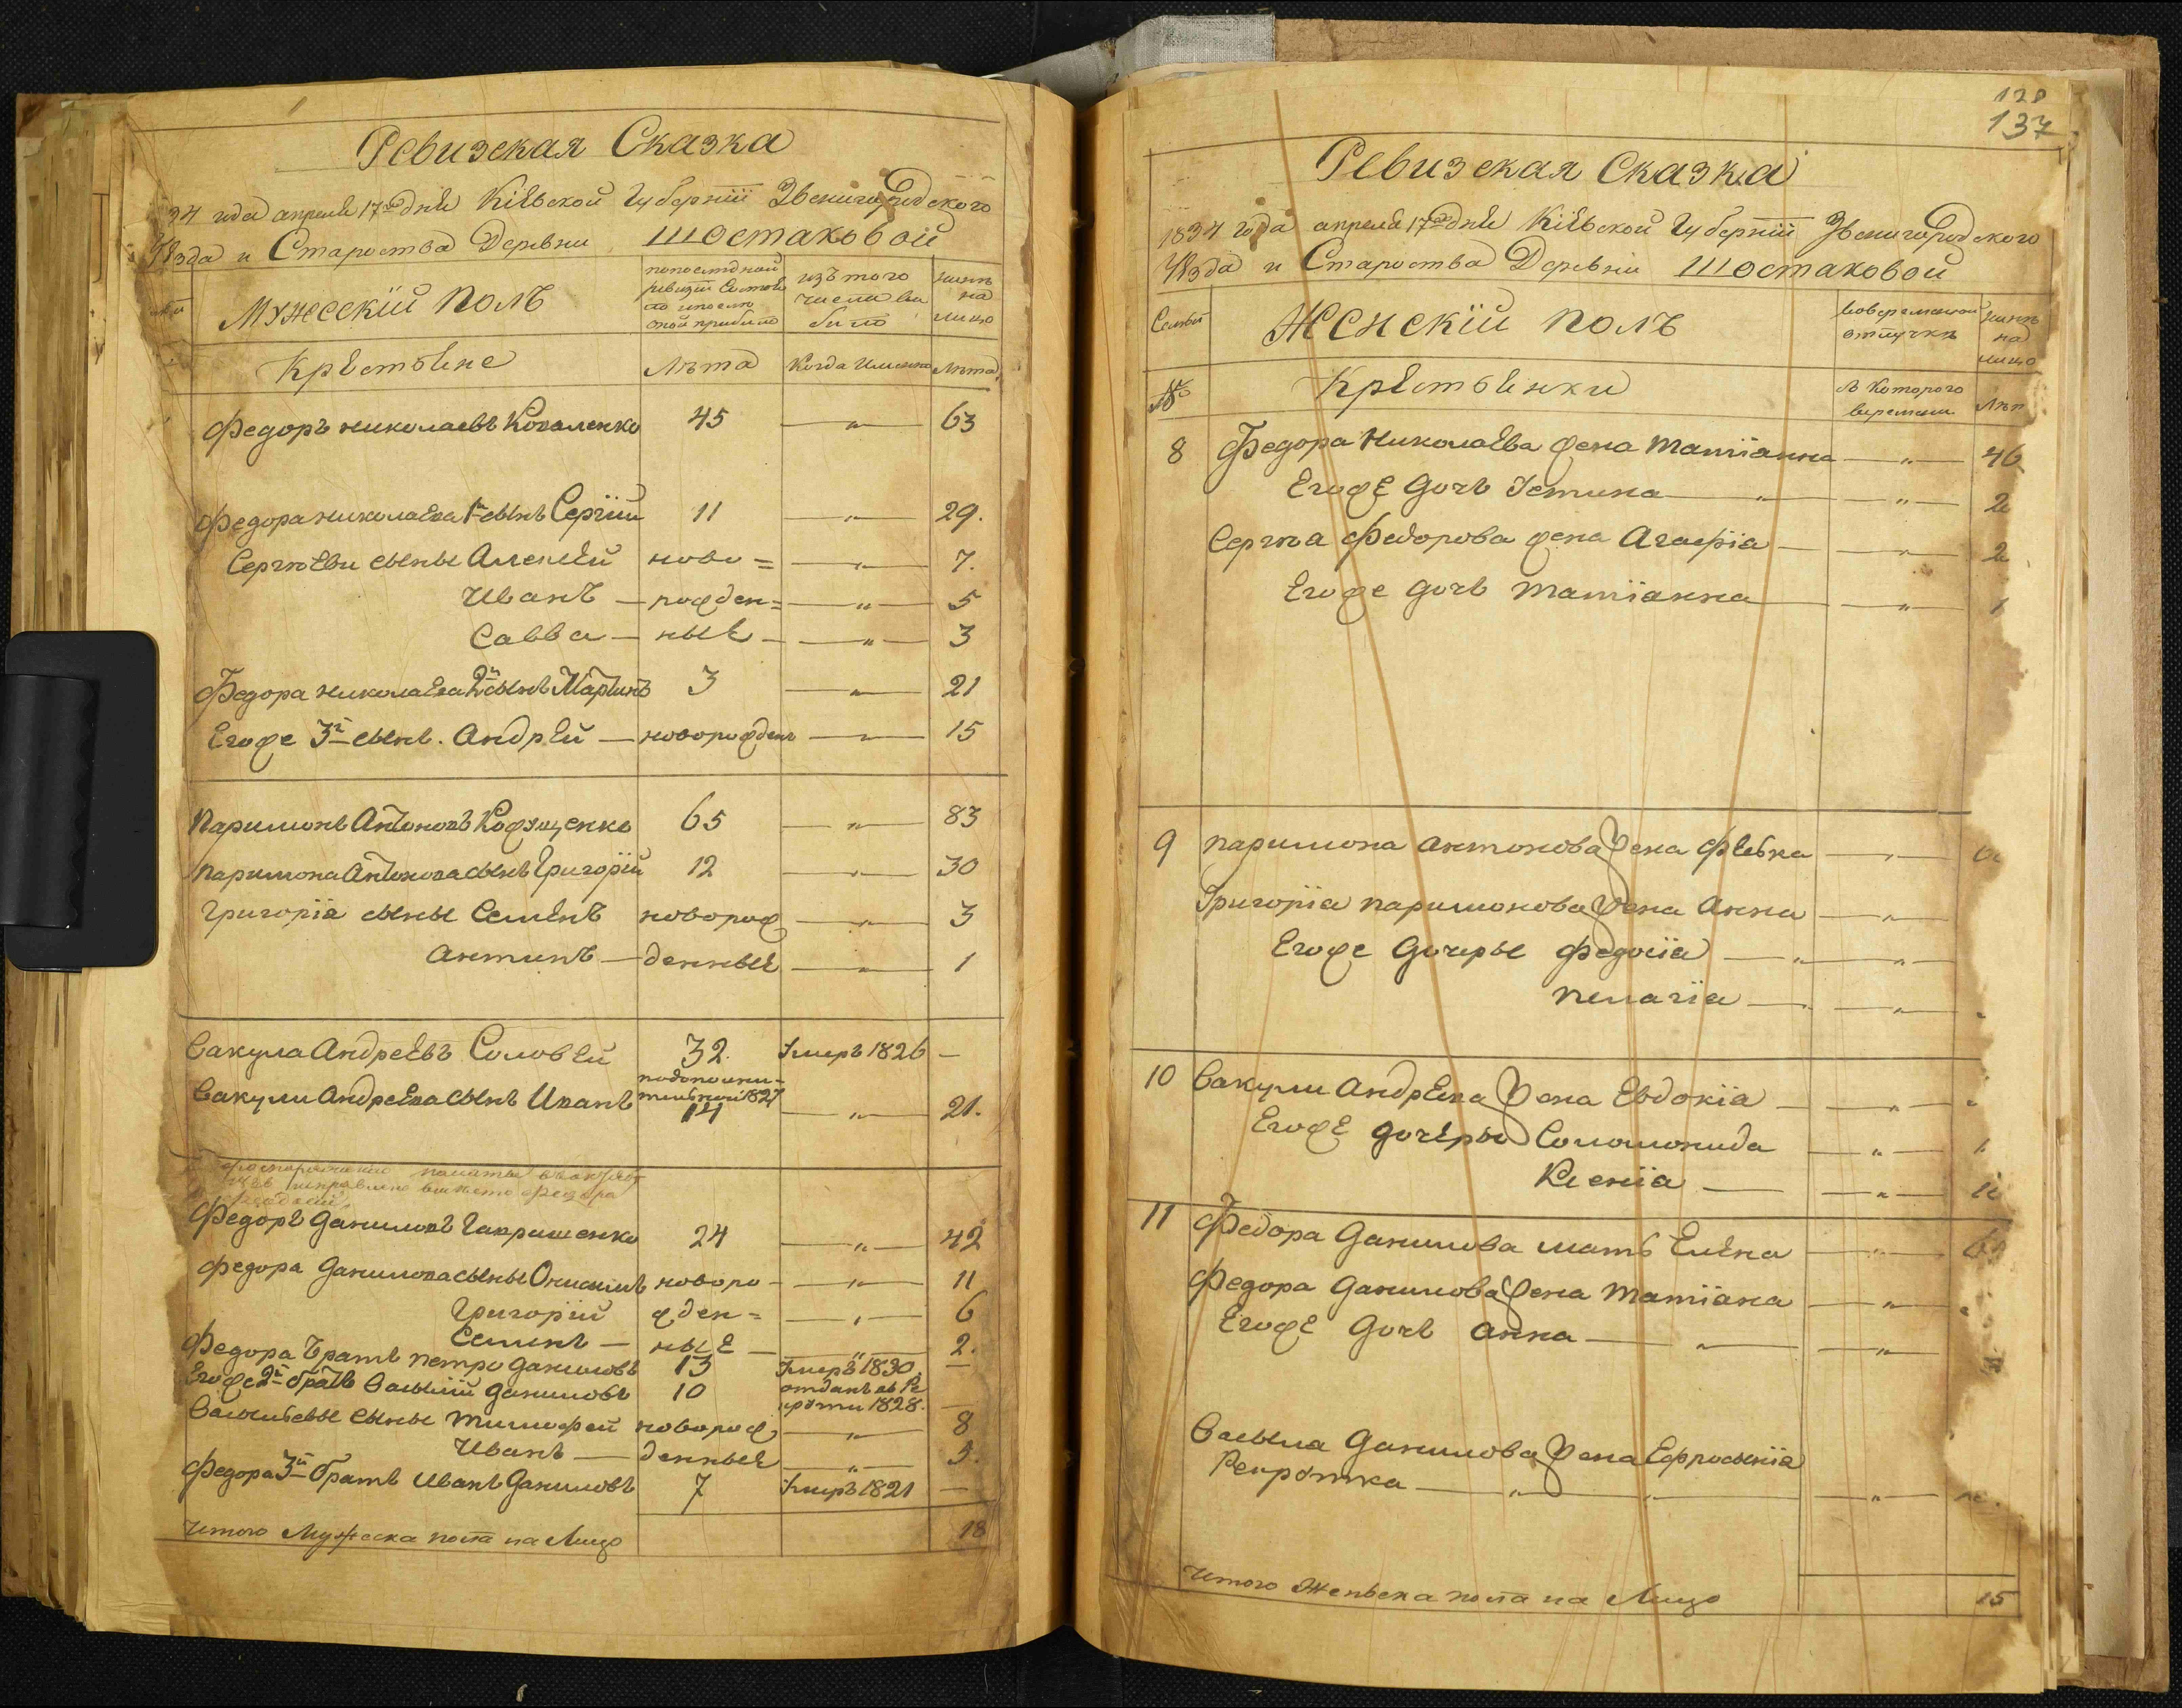 Ревизская Сказка
34 года апреля 17го дня Кіевской Губерніи Звенигородского
Уѣзда и Староства Деревни Шостаковой
Мужескій полъ
по последной ревизіи состояло и после оной прибыло
изъ того числа выбыло
нынѣ на лицо
Крестьяне
Лѣта
Когда Именно
Лѣта
Федоръ николаевъ Коваленко 45 — „ — 63
Федора николаева 1й сынъ Сергій 11 — „ — 29.
Сергѣеви сыны Алексей ново= — „ — 7.
Иванъ — рожден= — „ — 5
Савва — ные — — „ — 3
Федора николаева 2й сынъ Мартинъ 3 — „ — 21
Егоже 3й сынъ. Андрей — новорожден — „ — 15
Паримонъ Антоновъ 65 — „ — 83
Паримона Антонова сынъ Григорій 12 — „ — 30
Григорія сыны Семенъ новорож — „ — 3
Антипъ — денные — „ — 1
Вакула Андреевъ Соловей 32. Умеръ 1826 —
Вакули Андреева сынъ Иванъ по дополнительной 1827 14 — „ — 21.
Федоръ Даниловъ Гаврашенко 24 — „ — 42
Федора Данилова сыны Онисимъ новоро — „ — 11
Григорій жден= — „ — 6
Семенъ — ные — „ — 2.
Федора Братъ петро Даниловъ 13 Умеръ 1830. —
Егоже 2й братъ Василій Даниловъ 10 отданъ въ Рекруты 1828. —
Васильевы сыны Тимофей новорож — „ — 8
Иванъ — денные — „ — 5.
Федора 3й братъ Иванъ Даниловъ 7 Умеръ 1821 —
Итого Мужеска пола на Лицо 18
128
137
Ревизская Сказка
1834 года апреля 17го дня Кіевской Губерніи Звенигородского
Уѣзда и Староства Деревни Шостаковой
Семьи
Женскій полъ
во временной отлучкѣ
нынѣ на лицо
№
Крестьянки
съ которого времени
Лѣт
8 Федора Николаева жена Татіанна — „ — 46
Егоже дочь Устина — „ — „ —
Сергѣя Федорова жена Агафія — „ —
Егоже дочь Татіанна — „ —
9 Паримона Антонова жена Февка — „ —
Григорія паримонова жена Анна — „ —
Егоже дочеры Федосія — „ — „ —
пелагія — „ —
10 Вакули Андреева жена Евдокія — „ —
Егоже дочеры Соломонида — „ —
Ксенія — „ —
11 Федора Данилова мать Елена — „ —
Федора Данилова жена Татіана — „ —
Егоже дочь Анна — „ — „ —
Васыла Данилова жена Ефросынія
Рекрутка — „ — „ — „ —
Итого Женьска пола на Лицо 15